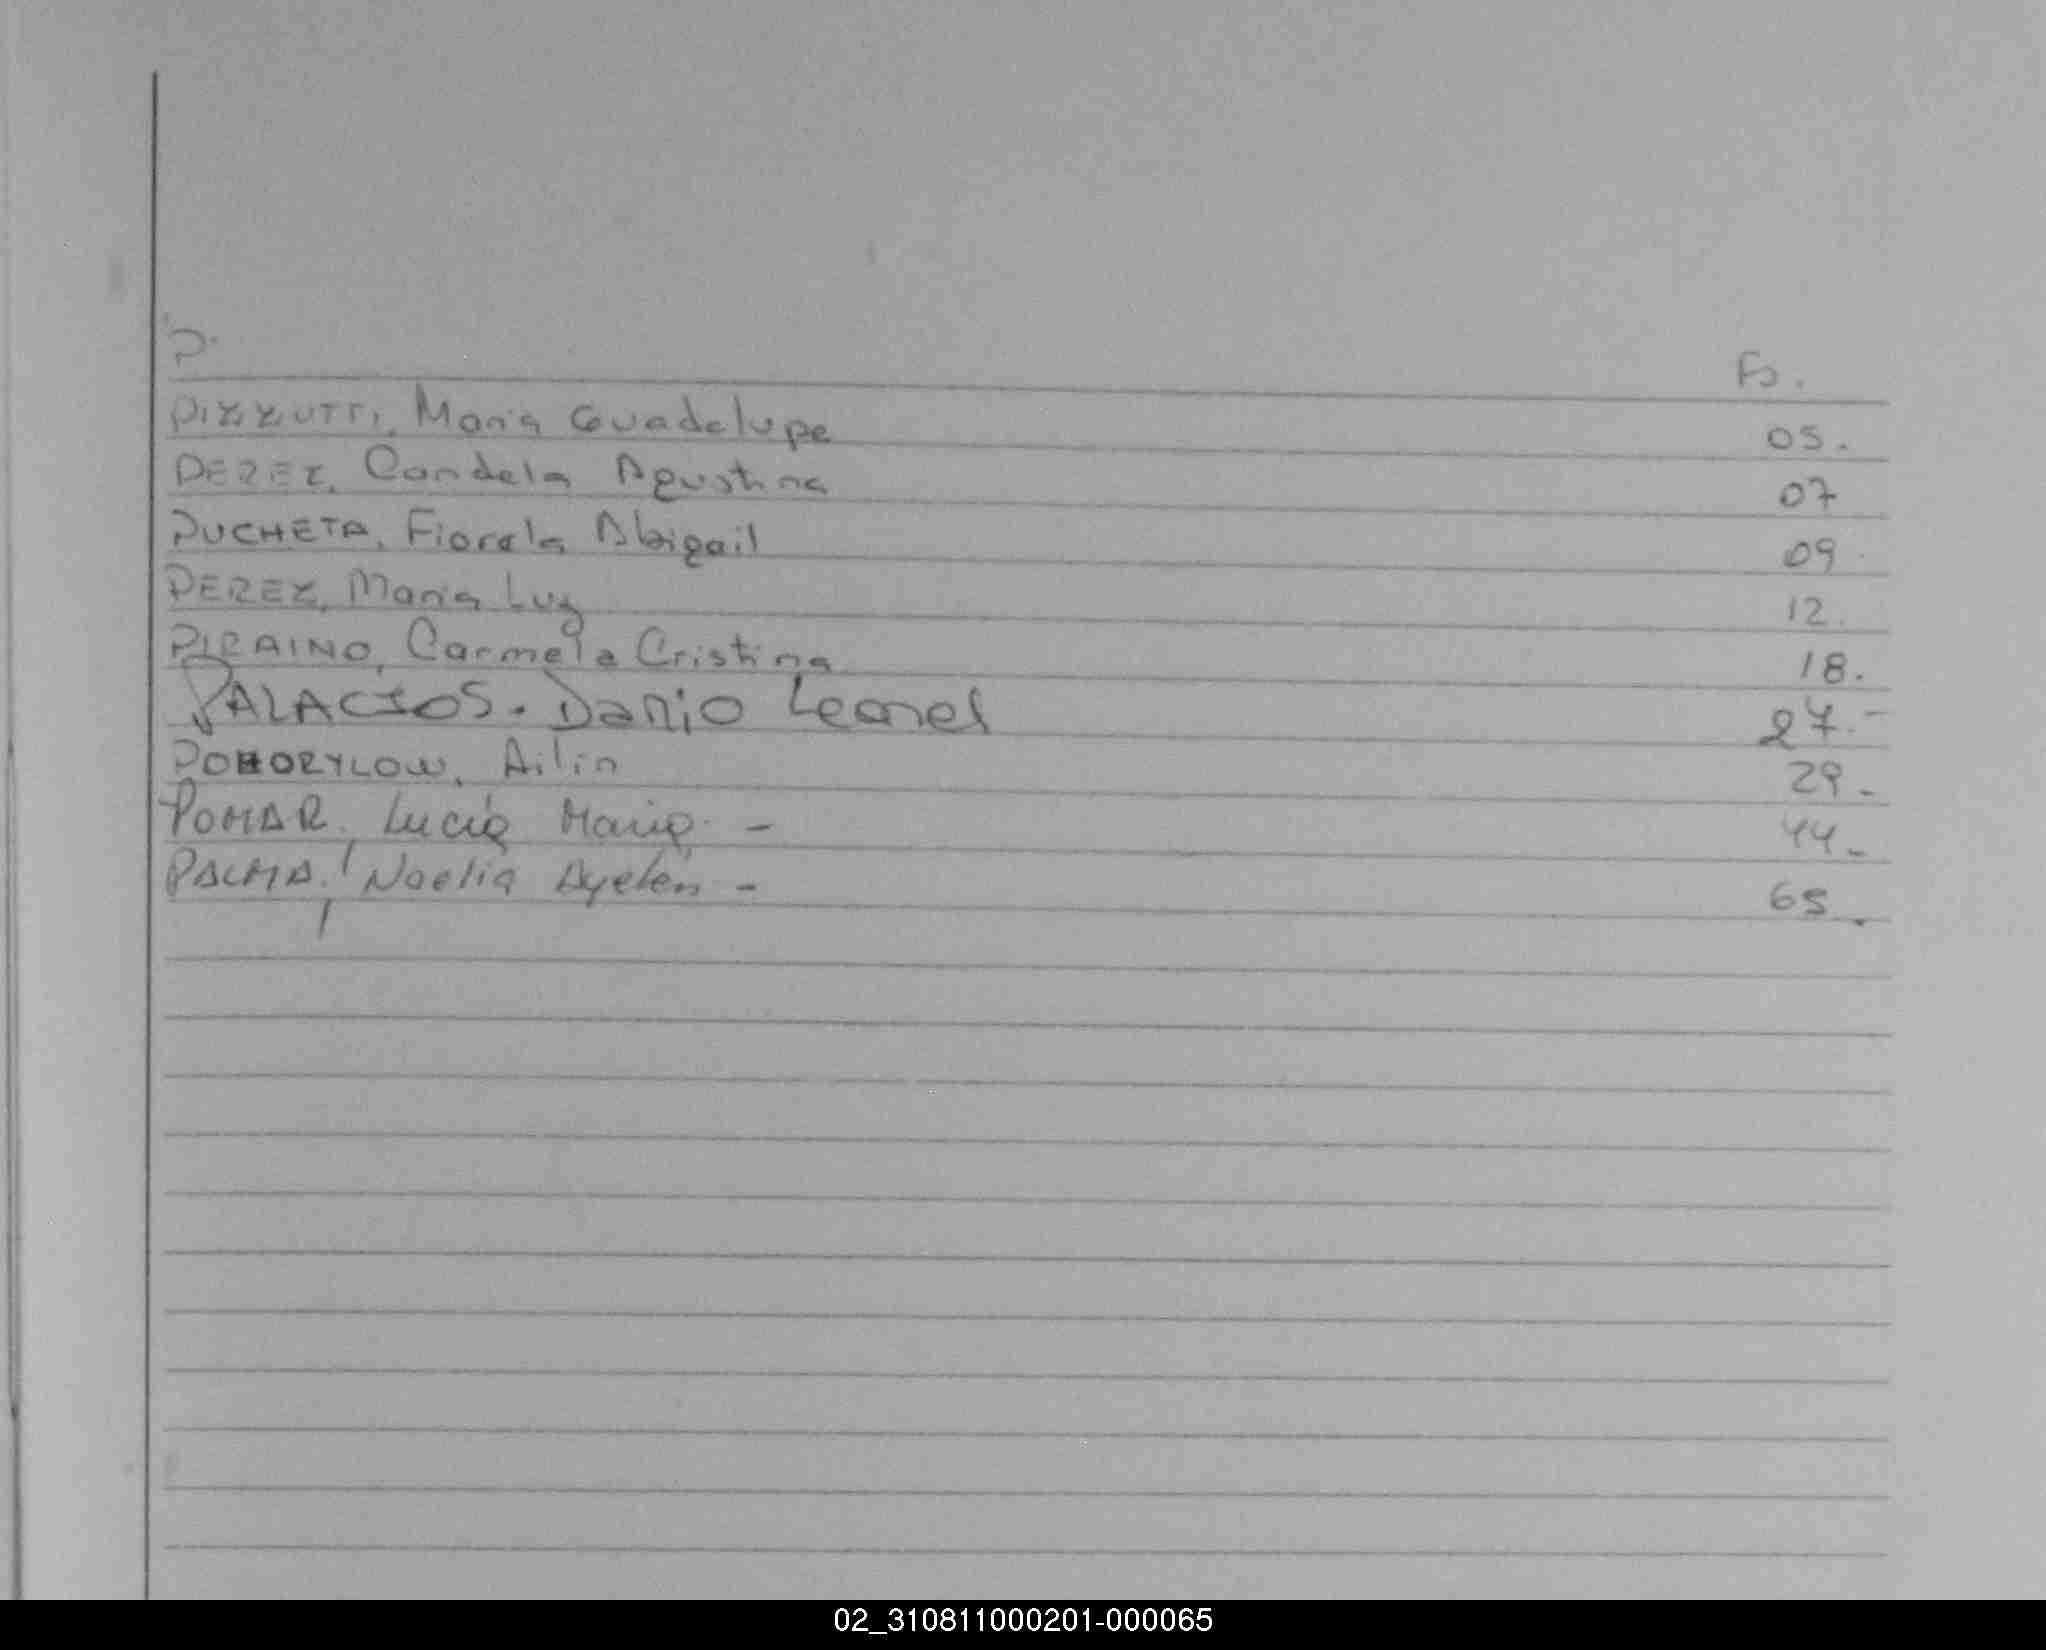 P. Fs.
PIZZUTTI, Maria Guadalupe 05.
PEREZ, Candela Agustina 07
PUCHETA, Fiorela Abigail 09
PEREZ, Maria Luz 12.
PIRAINO, Carmela Cristina 18.
PALACIOS. Dario Leonel 27.-
POHORYLOW, Ailin 29-
POMAR. Lucía Maria. - 44-
PALMA. Noelia Ayelén - 65.
02_310811000201-000065